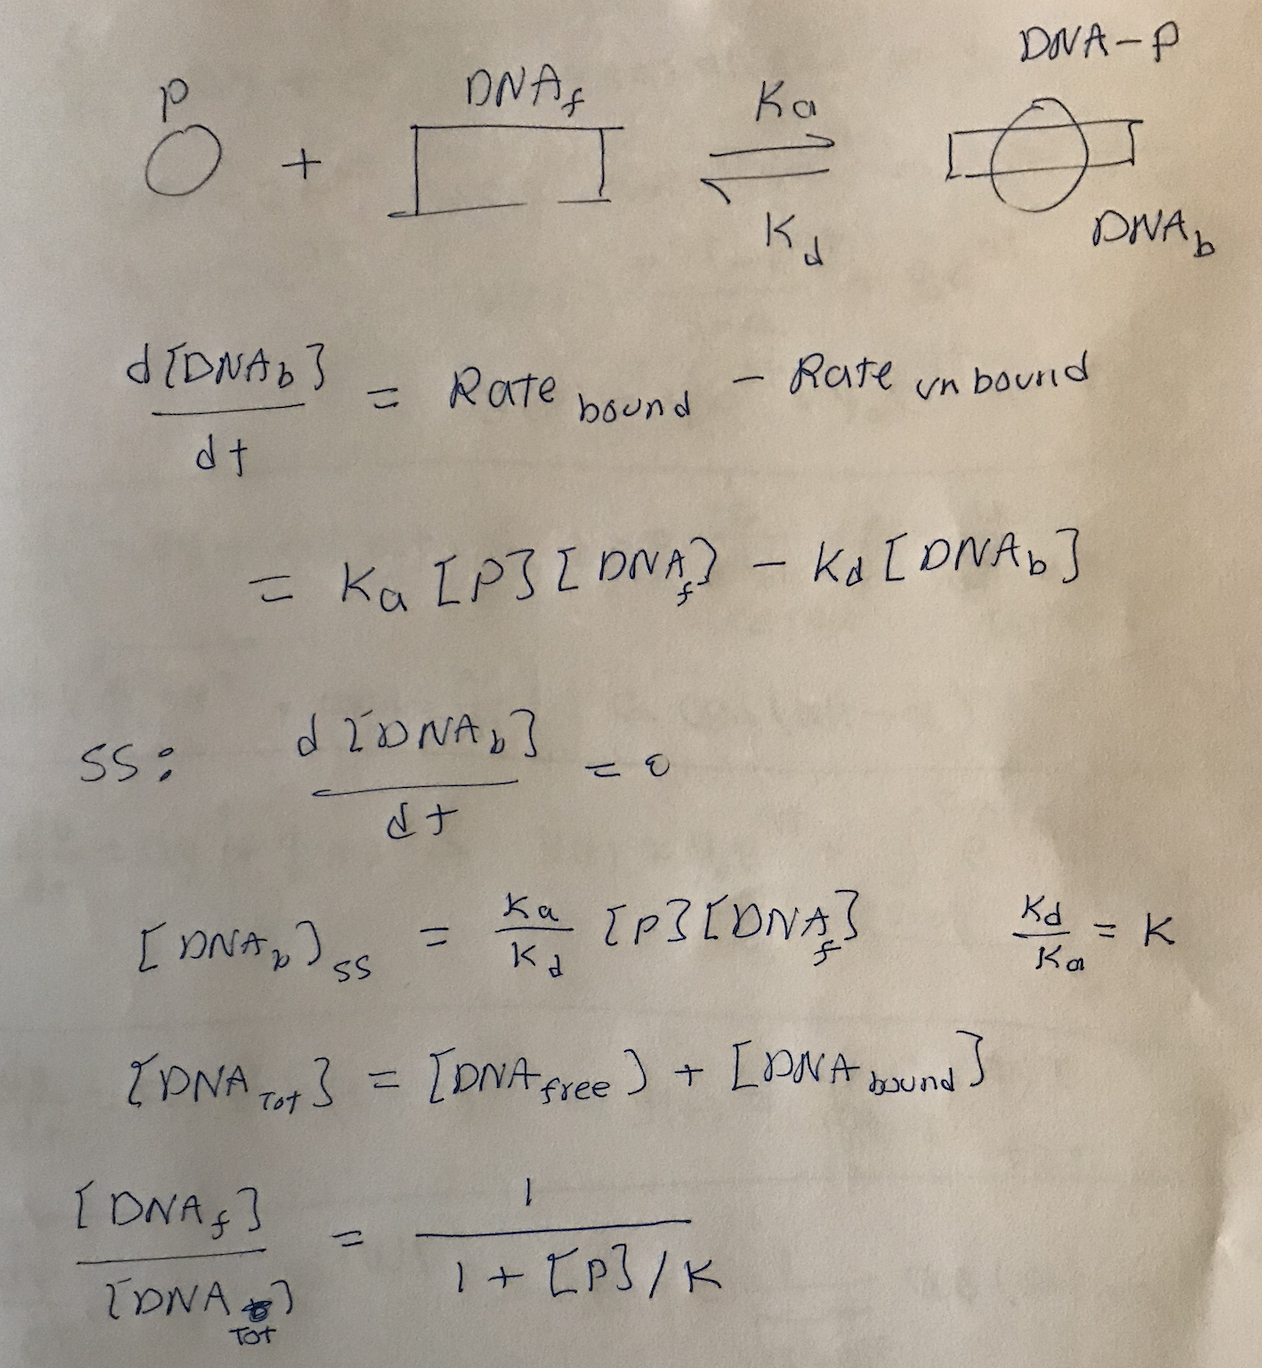 P + DNA_f ⇌ DNA-P
K_a
K_d
DNA_b
d[DNA_b]/dt = Rate_bound - Rate_unbound
= K_a [P][DNA_f] - K_d [DNA_b]
SS: d[DNA_b]/dt = 0
[DNA_b]_SS = K_a/K_d [P][DNA_f] K_d/K_a = K
[DNA_Tot] = [DNA_free] + [DNA_bound]
[DNA_f]/[DNA_Tot] = 1/(1 + [P]/K)